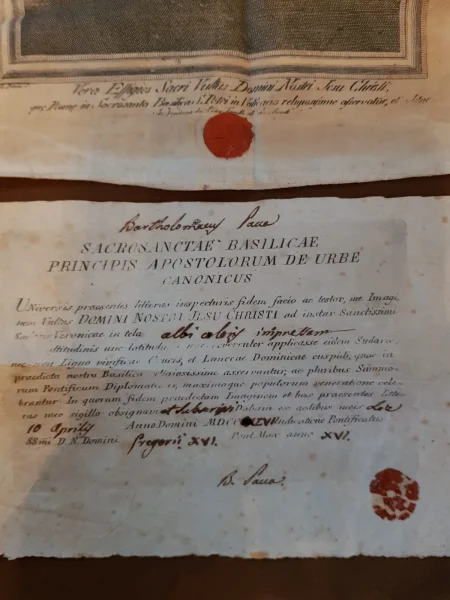 Vera Effigies Sacri Vultus Domini Nostri Jesu Christi,
quae Romae in Sacrosancta Basilica S. Petri in Vaticano religiosissime asservatur, et
Bartholomaeus Pacca
SACROSANCTAE BASILICAE
PRINCIPIS APOSTOLORUM DE URBE
CANONICUS
UNiversis praesentes litteras inspecturis fidem facio ac testor, me Imagi
nem Vultus DOMINI NOSTRI JESU CHRISTI ad instar Sanctissimi
Veronicae in tela albi coloris impressam
titudinis unc latitud reverenter applicasse eidem Sudario
nec non Ligno vivificae Crucis, et Lanceae Dominicae cuspidi, quae in
praedicta nostra Basilica religiosissime asservantur, ac pluribus Summo-
rum Pontificum Diplomatis, maximaque populorum veneratione cele-
brantur. In quorum fidem praedictam Imaginem et has praesentes litte-
ras meo sigillo obsignavi Datum ex aedibus meis
10 Aprilis Anno Domini Indictione Pontificatus
SSmi D. N. Domini Gregorii XVI. Pont. Max. anno XVI.
B. Pacca.